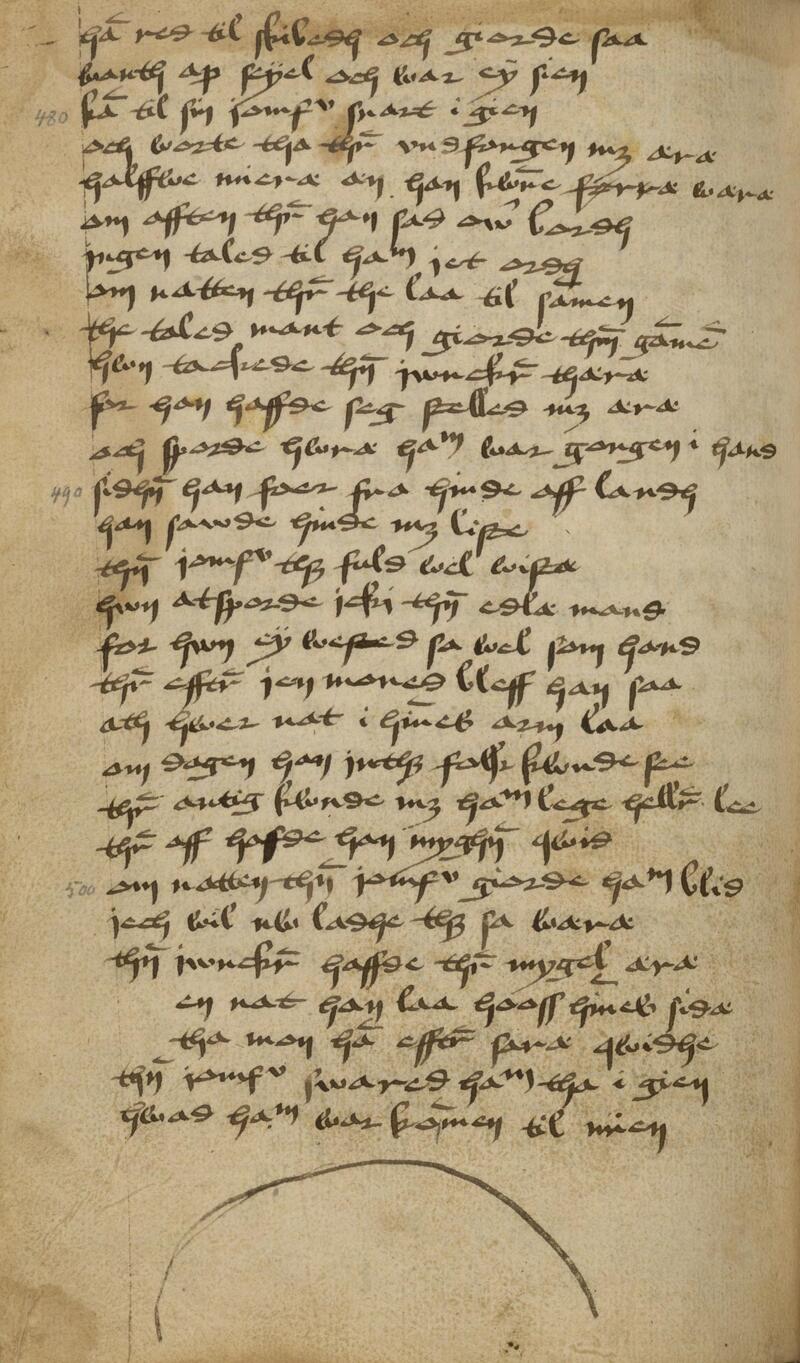 hā red til skibedh och giorde saa
wanth ap seyel och war ey sien
480 kā til sin iomfv snart i gien
och worte tha thr̄ vndfangen mȝ æra
halffwe miere æn han kwn̄e førræ wara
om afften thr̄ han sad ow̄ bordh
ingen taled til hām iet ordh
om natten thr̄ the laa til sāmen
the taled mant och giorde thn̄ gāmē
hwn tackede thn̄ iwnckr̄ thæra
for han haffde seg stelled mȝ æra
och sporde hwræ hām war gangen i hand
490 sidhn̄ han foer fra hinde aff landh
han sawde hinde mȝ liste
thn̄ iomfv thȝ fuld wel wiste
hwn atsporde icki thn̄ edlæ mand
for hwn ey wested sa wel som hand
thr̄ efftr̄ ien maned bleff han saa
ath hwer nat i hin̄es arm laa
om dagen han inthȝ folk kwnde see
thr̄ antig kwnde mȝ hām lege hellr̄ lee
thr̄ aff hafde han myghn̄ qwid
500 om natten thn̄ iomfv giorde hām blid
iech wil nw ladhe thȝ sa wæra
thn̄ iwnckr̄ haffde thr̄ mygel æra
en nat han laa hooss hin̄es side
tha mon hā efftr̄ faræ qwidhe
thn̄ iomfv swared hām tha i gien
hwad hām war kōmen til mien